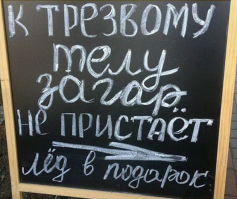 К ТРЕЗВОМУ
телу
загар
НЕ ПРИСТАЁТ
лёд в подарок.